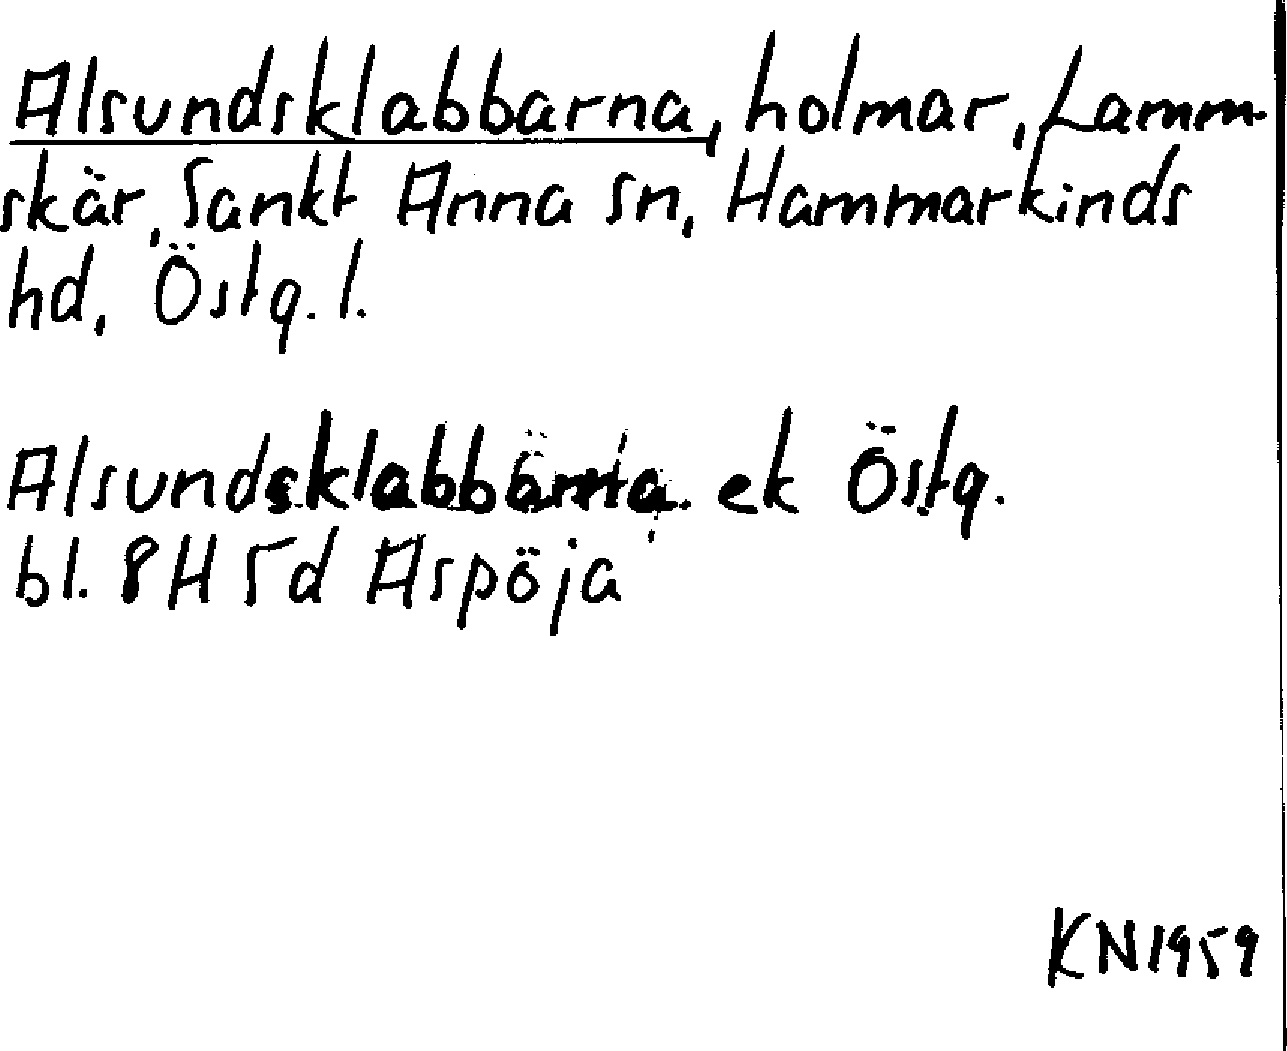 Alsundsklabbarna, holmar, Lamm-
skär, Sankt Anna sn, Hammarkinds
hd, Östg. l.
Alsundsklabbarna ek Östg.
bl. 8H 5d Aspöja
KN1959